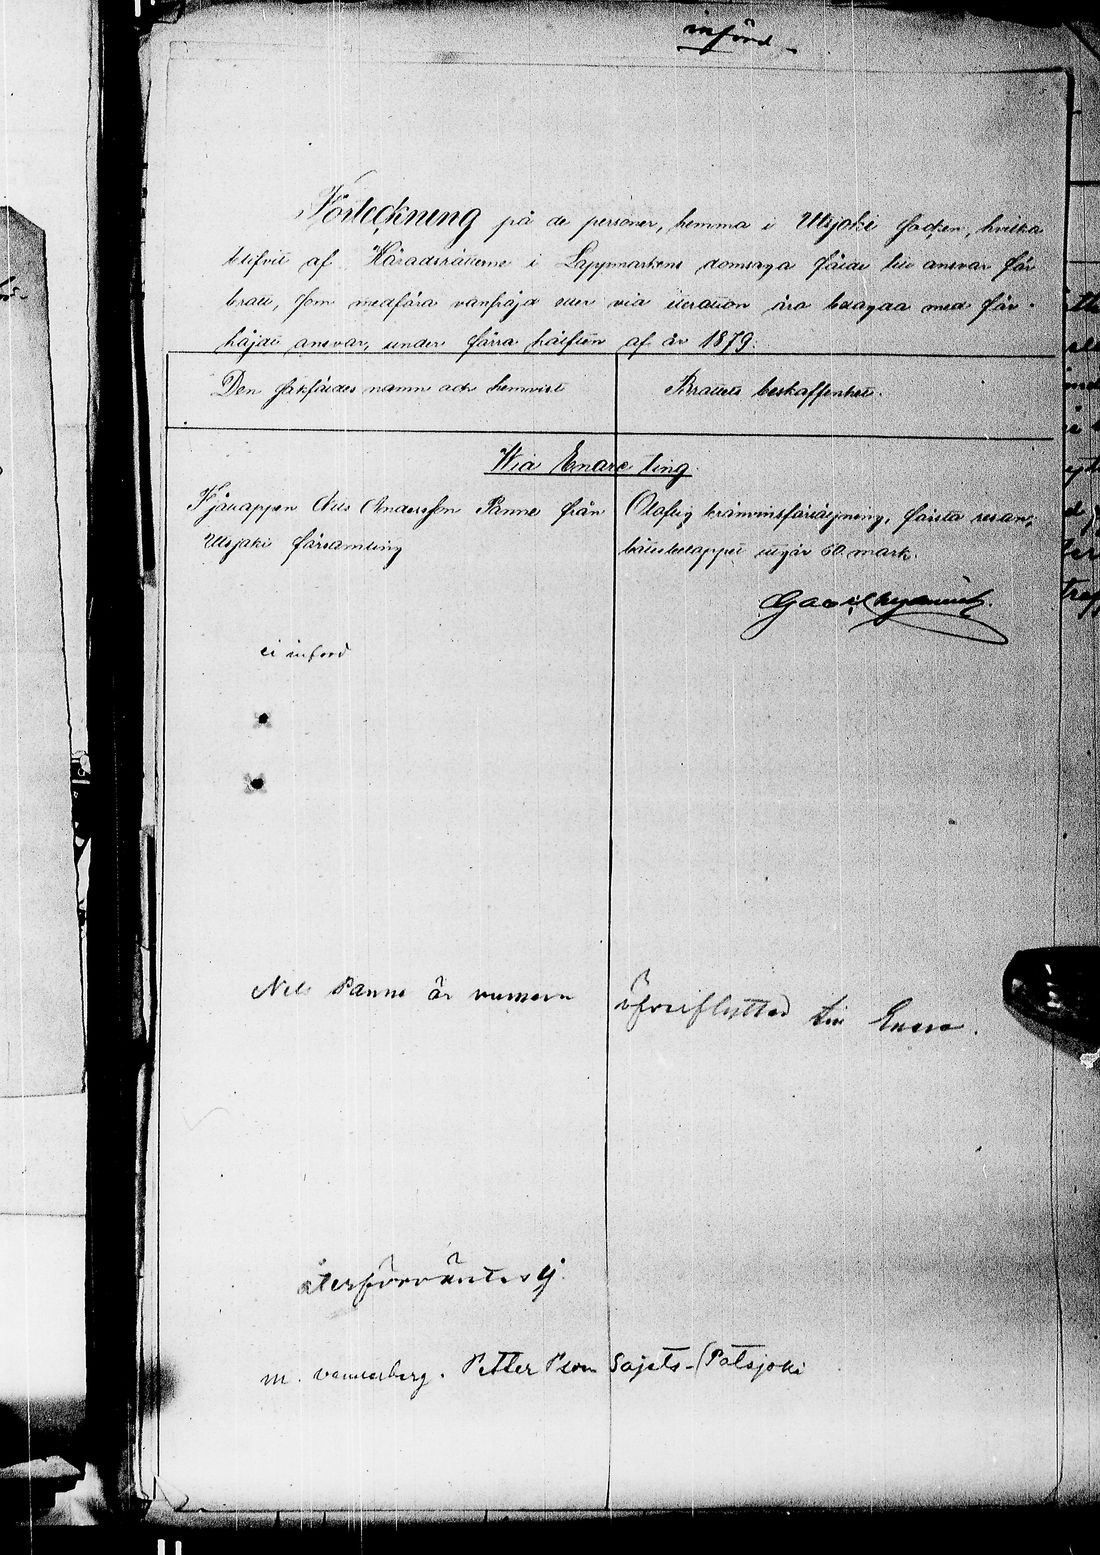 införd
Förteckning på de personer, hemma i Utsjoki socken, hvilka
blifvit af Häradsrätterne i Lappmarkens domsaga fälde till ansvar för
brott, som medföra vanfräjd eller vid iteration äro belagda med för-
höjdt ansvar, under förra hälften af år 1879.
Den sakfäldes namn och hemvist
Brottets beskaffenhet.
Wid Enare ting.
Fjellappen Nils Andersson Panne från
Utsjoki församling
Olaflig bränvinsförsäljning, första resan;
bötesbeloppet utgör 60 mark.
ej införd
Nils Panne är numera öfverflyttad till Enare.
återförväntas ej.
m. Wennerberg. Petter Pson Sajets-(Patsjoki